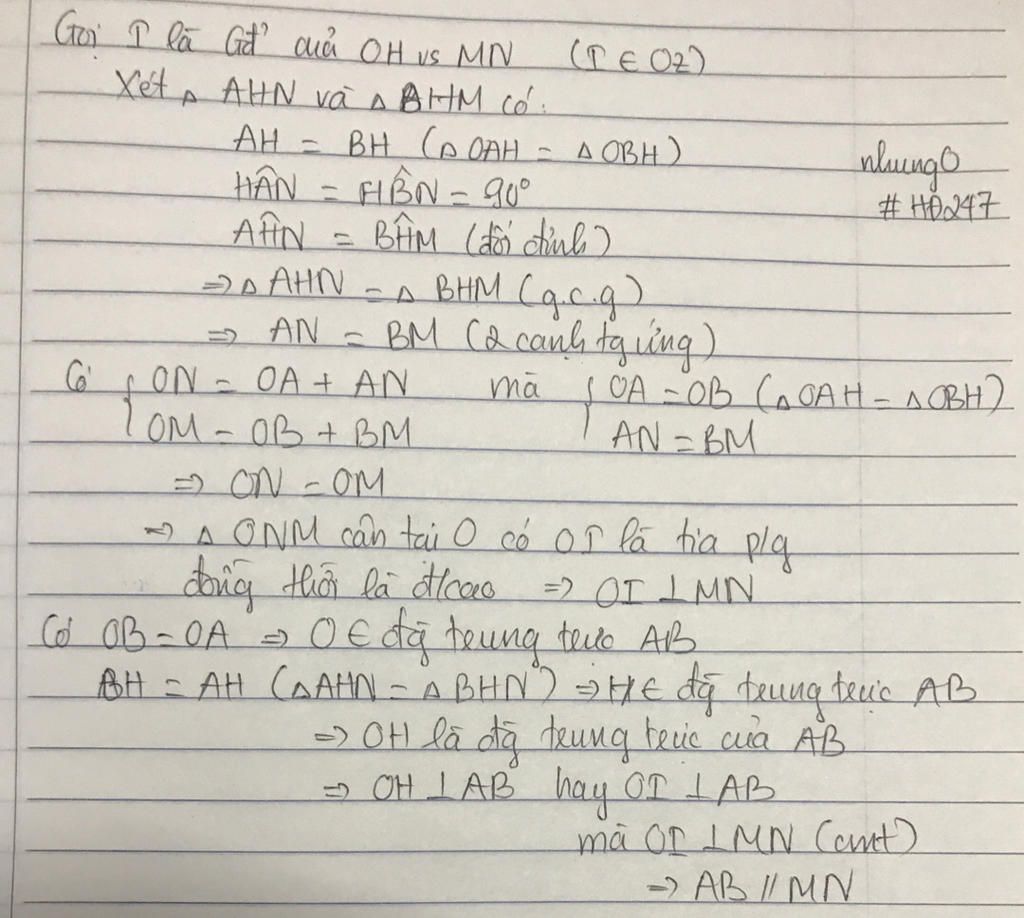 Gọi I là Gđ' của OH vs MN (I ∈ Oz)
Xét Δ AHN và Δ BHM có:
AH = BH (Δ OAH = Δ OBH)
HÂN = HB̂N = 90°
AĤN = BĤM (đối đỉnh)
⇒ Δ AHN = Δ BHM (g.c.g)
⇒ AN = BM (2 cạnh tg ứng)
nhung0
# HĐ247
Có { ON = OA + AN mà { OA = OB (Δ OAH = Δ OBH)
OM = OB + BM AN = BM
⇒ ON = OM
⇒ Δ ONM cân tại O có OI là tia p/g
đồng thời là đ/cao ⇒ OI ⊥ MN
Có OB = OA ⇒ O ∈ đg trung trực AB
BH = AH (Δ AHN = Δ BHN) ⇒ H ∈ đg trung trực AB
⇒ OH là đg trung trực của AB
⇒ OH ⊥ AB hay OI ⊥ AB
mà OI ⊥ MN (cmt)
⇒ AB // MN